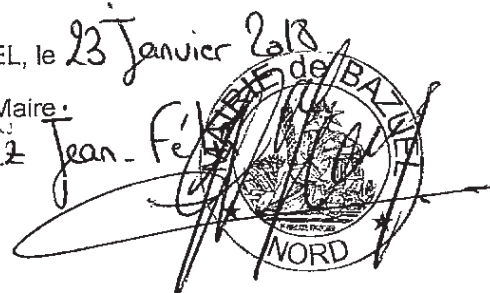 EL, le 23 Janvier 2018
Maire :
z Jean-Fé
MAIRIE de BAZUEL
NORD